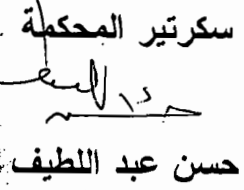 سكرتير المحكمة
حسن عبد اللطيف